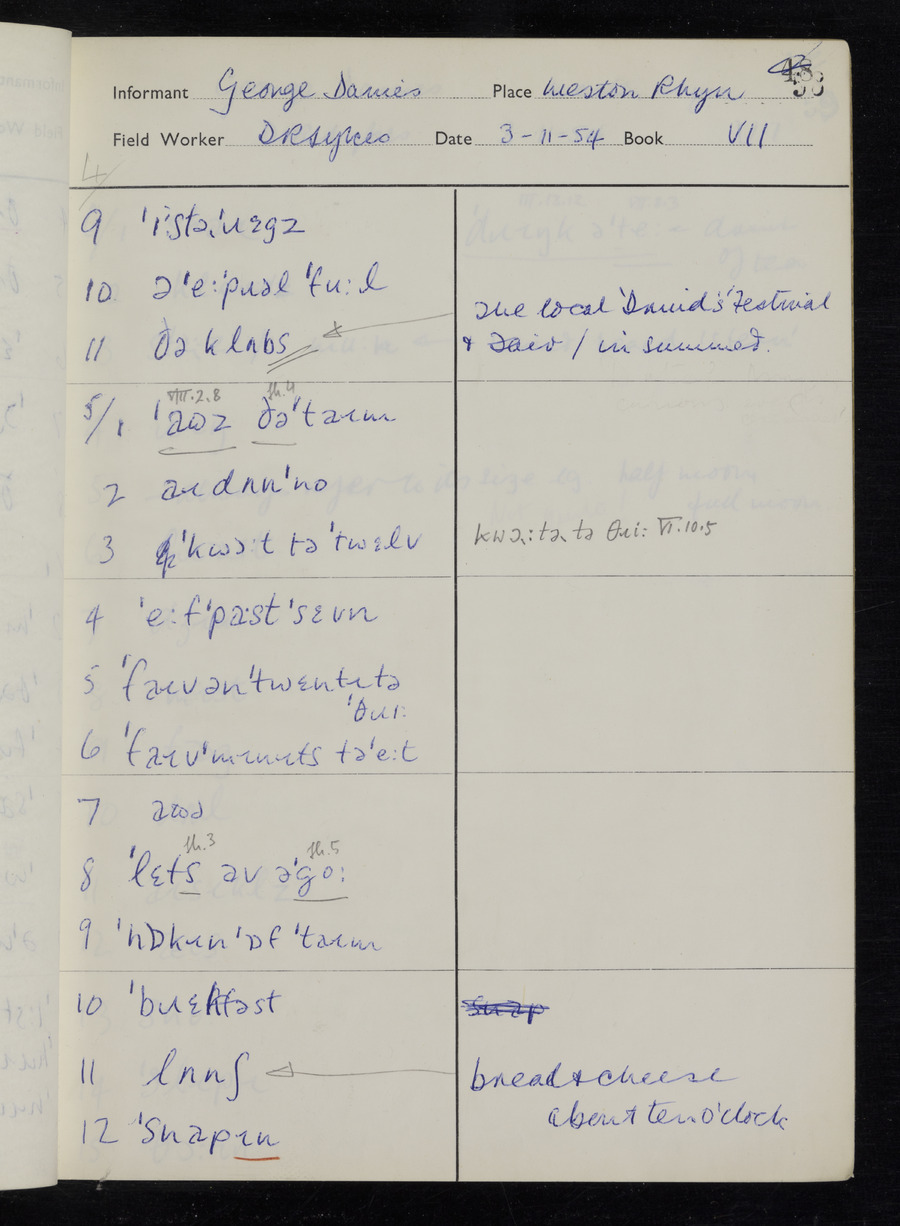 Informant George Davies Place Weston Rhyn
Field Worker DRSykes Date 3-11-54 Book VII
4
9 ˈiːstəˌɹɛgz
10 ə ˈeːˈpɹəl ˈfuːl
11 ðə klʌbs
the local 'David's' Festival
in summer.
VIII.2.8 sh.4
5/1 ˈaʊz ðəˈtaɪm
2 aɪ dʌnˈno
3 ˈkwəːt tə ˈtwɛlv
kwəːtə tə θɹiː VI.10.5
4 ˈeːf ˈpaːst ˈsɛvn
5 ˈfaɪv ənˈtwɛntɪ tə
ˈθɹiː
6 ˈfaɪvˈmɪnɪts təˈeːt
7 aʊə
sh.3 sh.5
8 ˈlɛts əv əˈgoː
9 ˈnɒkɪn ˈɒf ˈtaɪm
10 ˈbɹɛkfəst
snap
11 lʌnʃ
bread & cheese
about ten o'clock
12 ˈsnapɪn